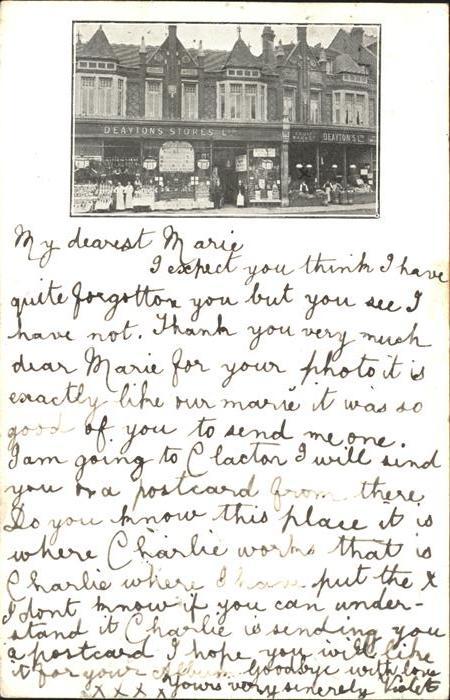 DEAYTONS STORES LTD
DEAYTON'S LTD
My dearest Marie
I expect you think I have
quite forgotton you but you see I
have not. Thank you very much
dear Marie for your photo it is
exactly like our marie it was so
good of you to send me one.
I am going to Clacton I will send
you a postcard from there
Do you know this place it is
where Charlie works that is
Charlie where I have put the x
I dont know if you can under-
stand it Charlie is sending you
a postcard I hope you will like
it for your Album Goodbye with love
x x x x yours very sincerely Violet